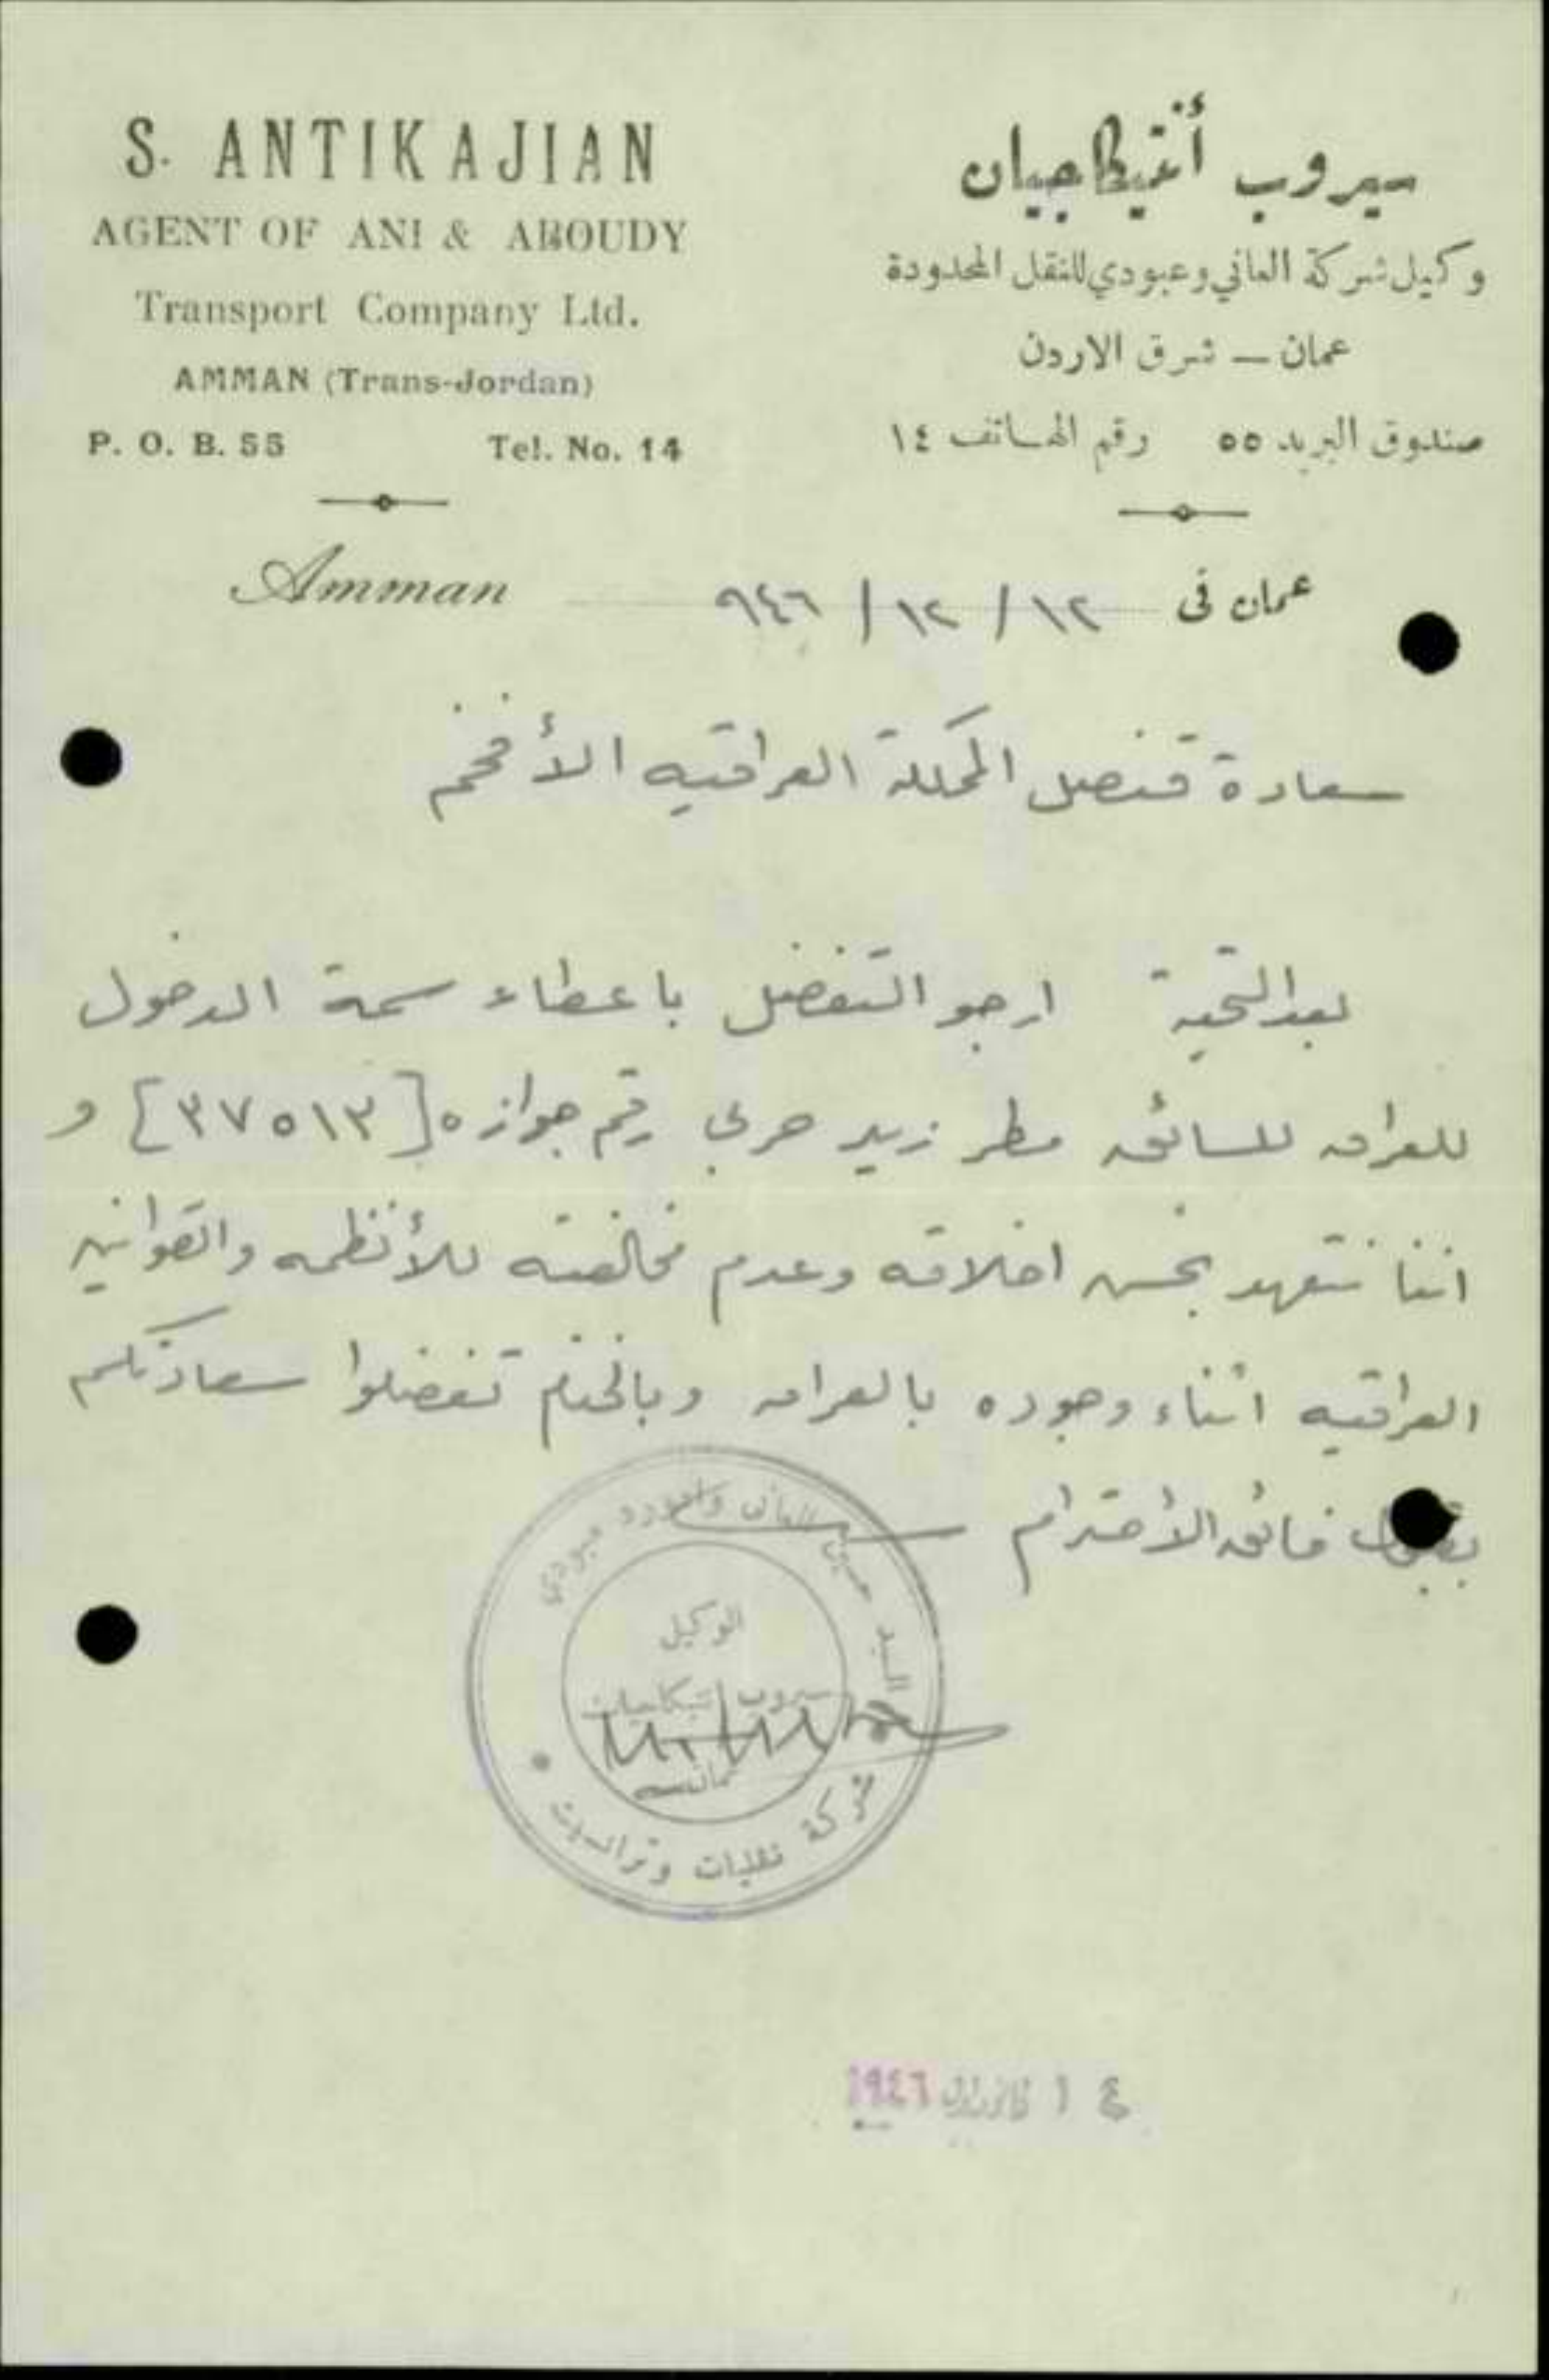 S. ANTIKAJIAN
AGENT OF ANI & ABOUDY
Transport Company Ltd.
AMMAN (Trans-Jordan)
P. O. B. 55 Tel. No. 14
سيروب أنتيكاجيان
وكيل شركة العاني وعبودي للنقل المحدودة
عمان — شرق الاردن
صندوق البريد ٥٥ رقم الهاتف ١٤
Amman
عمان في ١٢ / ١٢ / ٩٤٦
سعادة قنصل المملكة العراقيه الأفخم
بعد التحية ارجو التفضل باعطاء سمة الدخول
للعراق للسائق مطر زيد حربي رقم جوازه [٣٧٥١٣] و
اننا نتعهد بحسن اخلاقه وعدم مخالفته للأنظمه والقوانين
العراقيه اثناء وجوده بالعراق وبالختام تفضلوا سعادتكم
بقبول فائق الأحترام
السيد حسين العاني وادورد عبودي
الوكيل
سيروب انتيكاجيان
عمان
شركة نقليات وترانسيت
١٤ كانون الاول ١٩٤٦